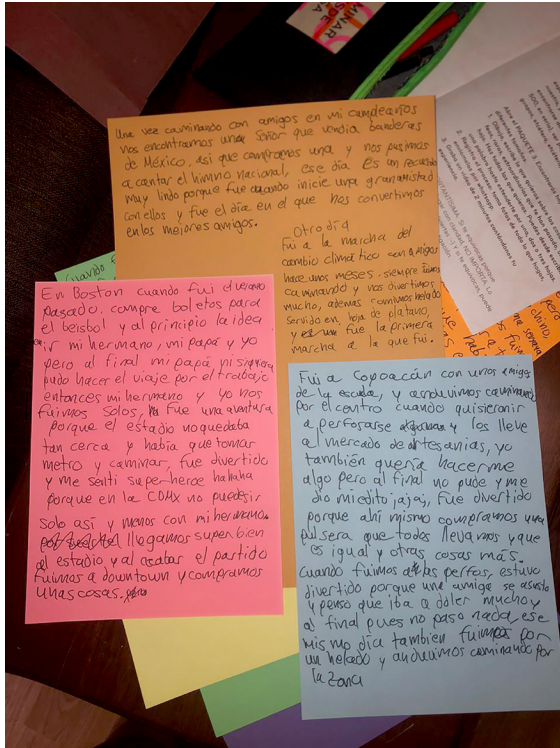 MINAR
Una vez caminando con amigos en mi cumpleaños
nos encontramos una señor que vendia banderas
de México, asi que compramos una y nos pusimos
a cantar el himno nacional, ese día es un recuerdo
muy lindo porque fue cuando inicie una gran amistad
con ellos y fue el día en el que nos convertimos
en los mejores amigos.
Otro día
Fui a la marcha del
cambio climático con amigos
hace unos meses. siempre
caminando y nos divertimos
mucho, ademas comimos helado
servido en hoja de platano,
y fue la primera
marcha a la que fui.
Cuando f
En Boston cuando fui el verano
pasado, compre boletos para
el beisbol y al principio la idea
ir mi hermano, mi papá y yo
pero al final mi papá ni siquiera
pudo hacer el viaje por el trabajo
entonces mi hermano y yo nos
fuimos solos, fue una aventura
porque el estadio no quedaba
tan cerca y había que tomar
metro y caminar, fue divertido
y me senti superheroe hahaha
porque en la CDMX no puedes ir
solo así y menos con mi hermano.
llegamos super bien
al estadio y al acabar el partido
fuimos a downtown y compramos
unas cosas.
Fui a Copoacán con unos amigos
de la escuela, y anduvimos caminando
por el centro cuando quisieron
a perforarse y les lleve
al mercado de artesanias, yo
también quería hacerme
algo pero al final no pude y me
dio miedito jajaj, fue divertido
porque ahí mismo compramos una
pulsera que todos llevamos y que
es igual y otras cosas más.
Cuando fuimos a las perfos, estuvo
divertido porque una amiga se asusto
y penso que iba a doler mucho y
al final pues no paso nada, ese
mismo día tambien fuimos por
un helado y anduvimos caminando por
la zona
chino,